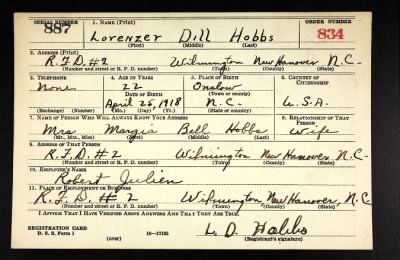 SERIAL NUMBER 1. NAME (Print) ORDER NUMBER
887 Lorenzer Dill Hobbs 834
(First) (Middle) (Last)
2. ADDRESS (Print)
R.F.D. #2 Wilmington New Hanover N.C.
(Number and street or R. F. D. number) (Town) (County) (State)
3. TELEPHONE 4. AGE IN YEARS 5. PLACE OF BIRTH 6. COUNTRY OF CITIZENSHIP
None 22 Onslow
DATE OF BIRTH (Town or county)
April 25, 1918 N.C. U.S.A.
(Exchange) (Number) (Mo.) (Day) (Yr.) (State or country)
7. NAME OF PERSON WHO WILL ALWAYS KNOW YOUR ADDRESS 8. RELATIONSHIP OF THAT PERSON
Mrs Margie Bell Hobbs Wife
(Mr., Mrs., Miss) (First) (Middle) (Last)
9. ADDRESS OF THAT PERSON
R.F.D. #2 Wilmington New Hanover N.C.
(Number and street or R. F. D. number) (Town) (County) (State)
10. EMPLOYER'S NAME
Robert Julien
11. PLACE OF EMPLOYMENT OR BUSINESS
R.F.D. #2 Wilmington New Hanover, N.C.
(Number and street or R. F. D. number) (Town) (County) (State)
I AFFIRM THAT I HAVE VERIFIED ABOVE ANSWERS AND THAT THEY ARE TRUE.
REGISTRATION CARD L. D. Hobbs
D. S. S. Form 1 (over) 16—17105 (Registrant's signature)